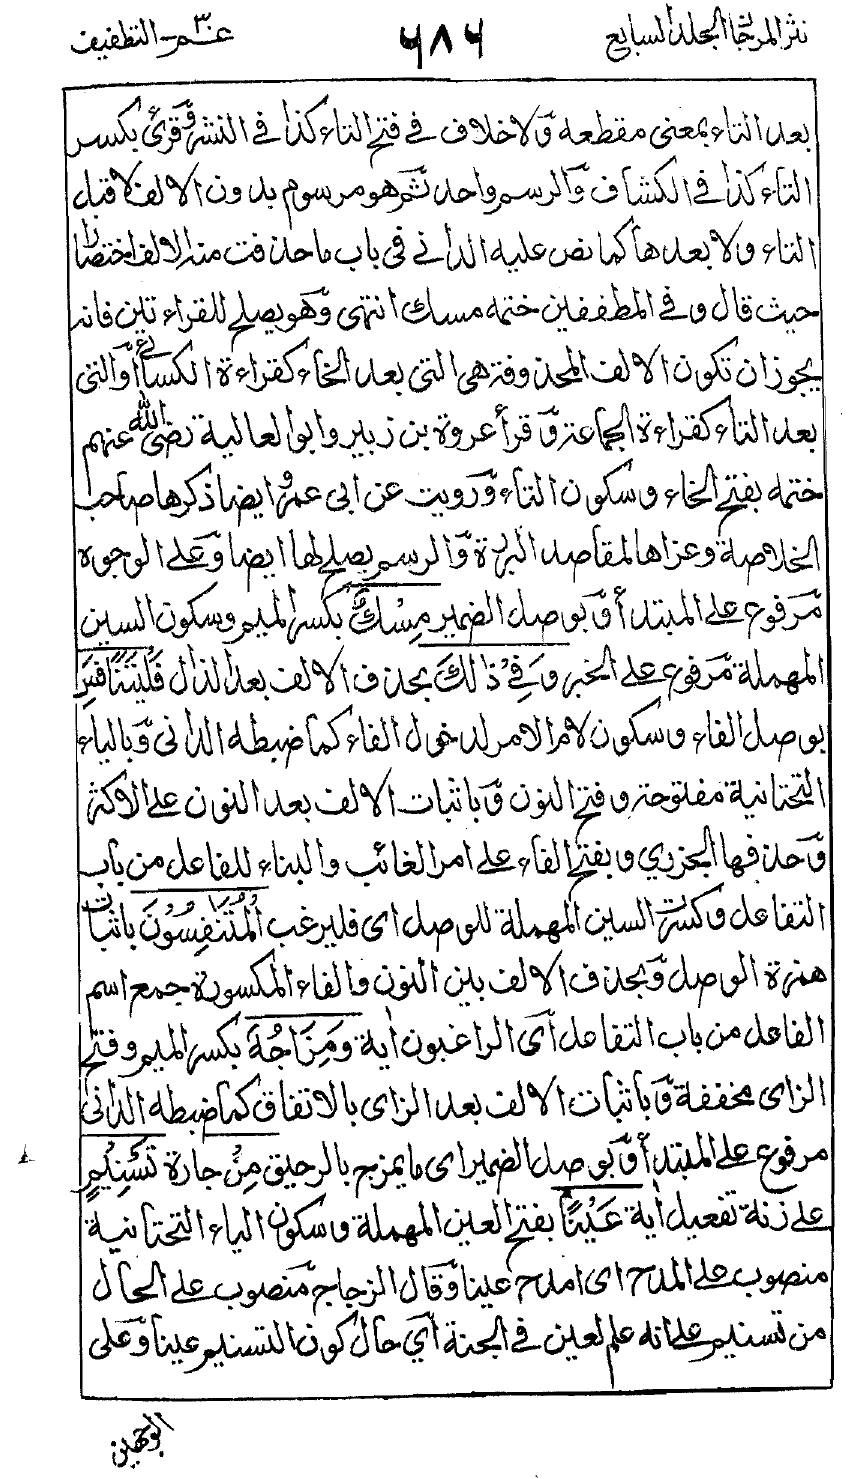 نثر المرجان الجلد السابع ٦٨٦ عم ٣٠ التطفيف
بعد التاء بمعنى مقطعه ولا خلاف في فتح التاء كذا في النشر وقرئ بكسر
التاء كذا في الكشاف والرسم واحد ثم هو مرسوم بدون الالف لا قبل
التاء ولا بعدها كما نص عليه الداني في باب ما حذفت منه الالف اختصارا
حيث قال وفي المطففين ختمه مسك انتهى وهو يصلح للقراءتين فانه
يجوز ان تكون الالف المحذوفة هي التي بعد الخاء كقراءة الكسائي او التي
بعد التاء كقراءة الجماعة وقرأ عروة بن زبير وابو العالية رضي الله عنهم
ختمه بفتح الخاء وسكون التاء ورويت عن ابي عمرو ايضا ذكرها صاحب
الخلاصة وعزاها لمقاصد البررة والرسم يصلح لها ايضا وعلى الوجوه
مرفوع على المبتدأ وبوصل الضمير مِسْكٌ بكسر الميم وسكون السين
المهملة مرفوع على الخبر وَفِيْ ذٰلِكَ بحذف الالف بعد الذال فَلْيَتَنَافَسِ
بوصل الفاء وسكون لام الامر لدخول الفاء كما ضبطه الداني وبالياء
التحتانية مفتوحة وفتح النون وباثبات الالف بعد النون على الاكثر
وحذفها الجزري وبفتح الفاء على امر الغائب والبناء للفاعل من باب
التفاعل وكسرت السين المهملة للوصل اي فليرغب الْمُتَنٰفِسُوْنَ باثبات
همزة الوصل وبحذف الالف بين النون والفاء المكسورة جمع اسم
الفاعل من باب التفاعل أي الراغبون اية وَمِزَاجُهٗ بكسر الميم وفتح
الزاى مخففة وباثبات الالف بعد الزاى بالاتفاق كما ضبطه الداني
مرفوع على المبتدأ وبوصل الضمير اى ما يمزج بالرحيق مِنْ جارة تَسْنِيْمٍ
على زنة تفعيل اية عَيْنًا بفتح العين المهملة وسكون الياء التحتانية
منصوب على المدح اى امدح عينا وقال الزجاج منصوب على الحال
من تسنيم على انه علم لعين في الجنة أي حال كون التسنيم عينا وعلى
الوجهين